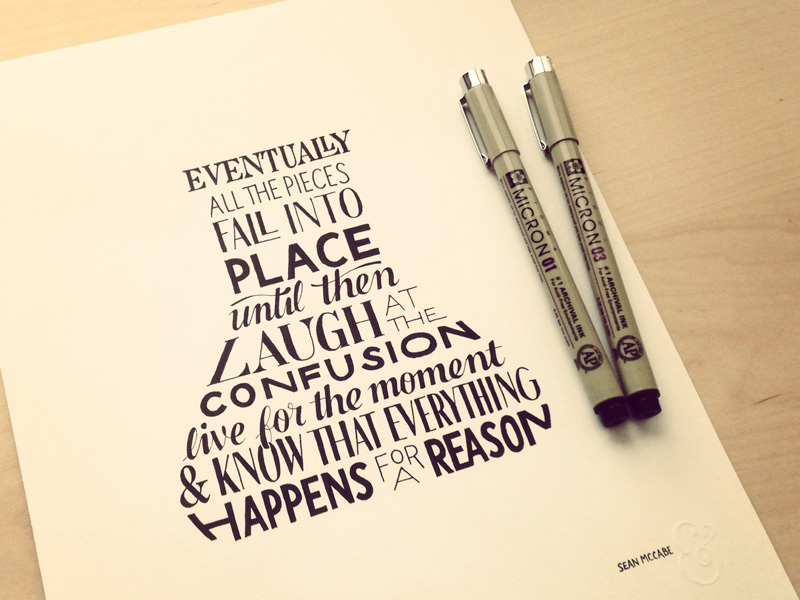 EVENTUALLY
ALL THE PIECES
FALL INTO
PLACE
until then
LAUGH AT THE
CONFUSION
live for the moment
& KNOW THAT EVERYTHING
HAPPENS FOR A REASON
MICRON 01
#1 ARCHIVAL INK
AP
MICRON 03
#1 ARCHIVAL INK
AP
SEAN MCCABE